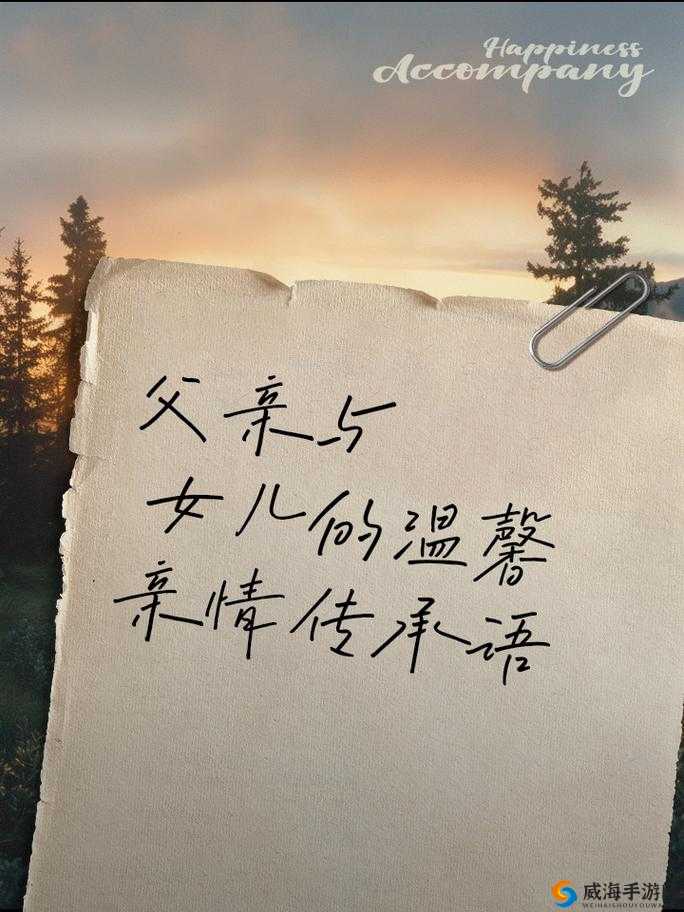 Happiness
Accompany
父亲与
女儿的温馨
亲情传承语
威海手游
WEIHAISHOUYOUWA